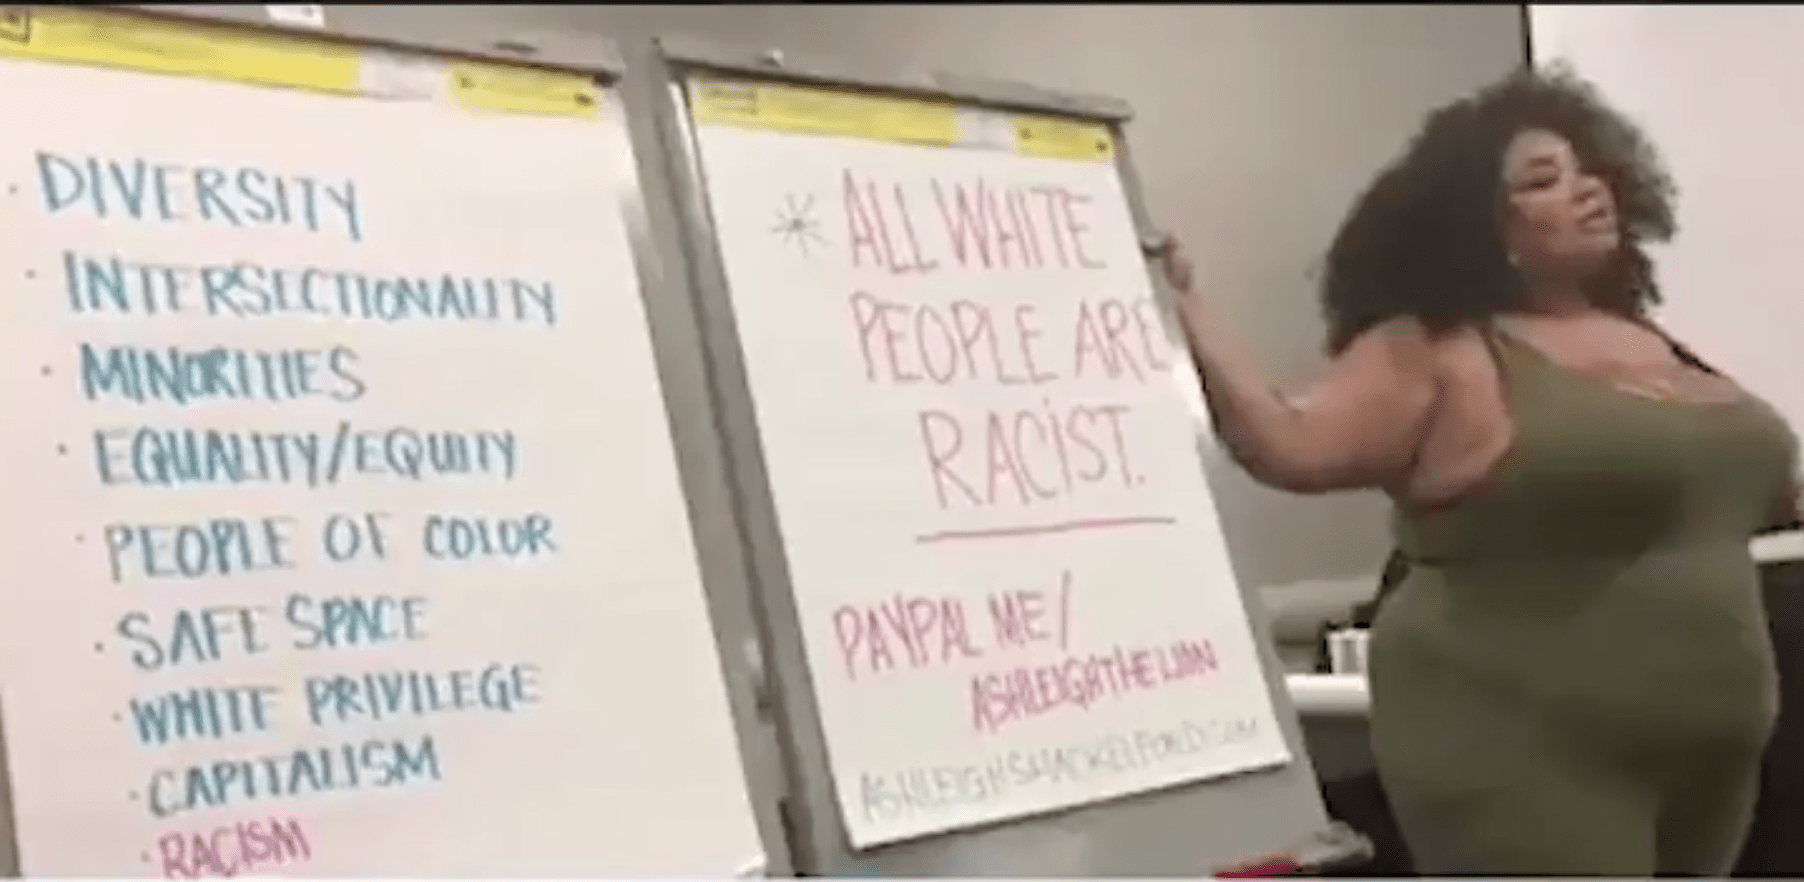 DIVERSITY
INTERSECTIONALITY
MINORITIES
EQUALITY/EQUITY
PEOPLE OF COLOR
SAFE SPACE
WHITE PRIVILEGE
CAPITALISM
RACISM
* ALL WHITE
PEOPLE ARE
RACIST.
PAYPAL ME/
ASHLEIGHTHELION
ASHLEIGHSHACKELFORD.COM